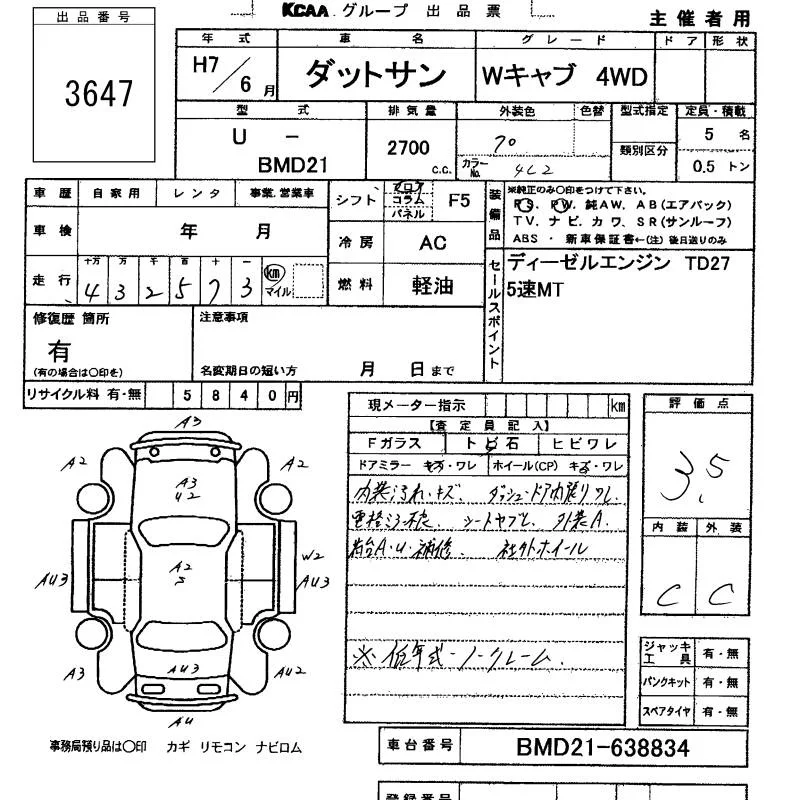 KCAA グループ 出品票
主催者用
出品番号
3647
年式 車名 グレード ドア 形状
H7/6月 ダットサン Wキャブ 4WD
型式 排気量 外装色 色替 型式指定 定員・積載
U - BMD21
2700 c.c.
70
カラーNo. 4L2
類別区分
5 名
0.5 トン
車歴 自家用 レンタ 事業.営業車
車検 年 月
走行 十万 万 千 百 十 一
432573 km マイル
シフト フロア コラム パネル F5
冷房 AC
燃料 軽油
装備品
※純正のみ〇印をつけて下さい。
PS、PW、純AW、AB(エアバック)
TV、ナビ、カワ、SR(サンルーフ)
ABS・新車保証書←(注)後日送りのみ
セールスポイント
ディーゼルエンジン TD27
5速MT
修復歴 箇所
有
(有の場合は〇印を)
注意事項
名変期日の短い方 月 日まで
リサイクル料 有・無 5840円
現メーター指示 km
【査定員記入】
Fガラス トビ石 ヒビワレ
ドアミラー キズ・ワレ ホイール(CP) キズ・ワレ
内装汚れ・キズ ダッシュ・ドア内張りワレ
シートヤブレ 外装A.
荷台A・U・補修 社外ホイール
※低年式・ノークレーム.
評価点
3.5
内装 外装
C C
A3
A2 A2
A3
U2
W2
A2
S
AU3 AU3
AU3
A3 AU2
AU
ジャッキ工具 有・無
パンクキット 有・無
スペアタイヤ 有・無
事務局預り品は〇印 カギ リモコン ナビロム
車台番号 BMD21-638834
登録番号